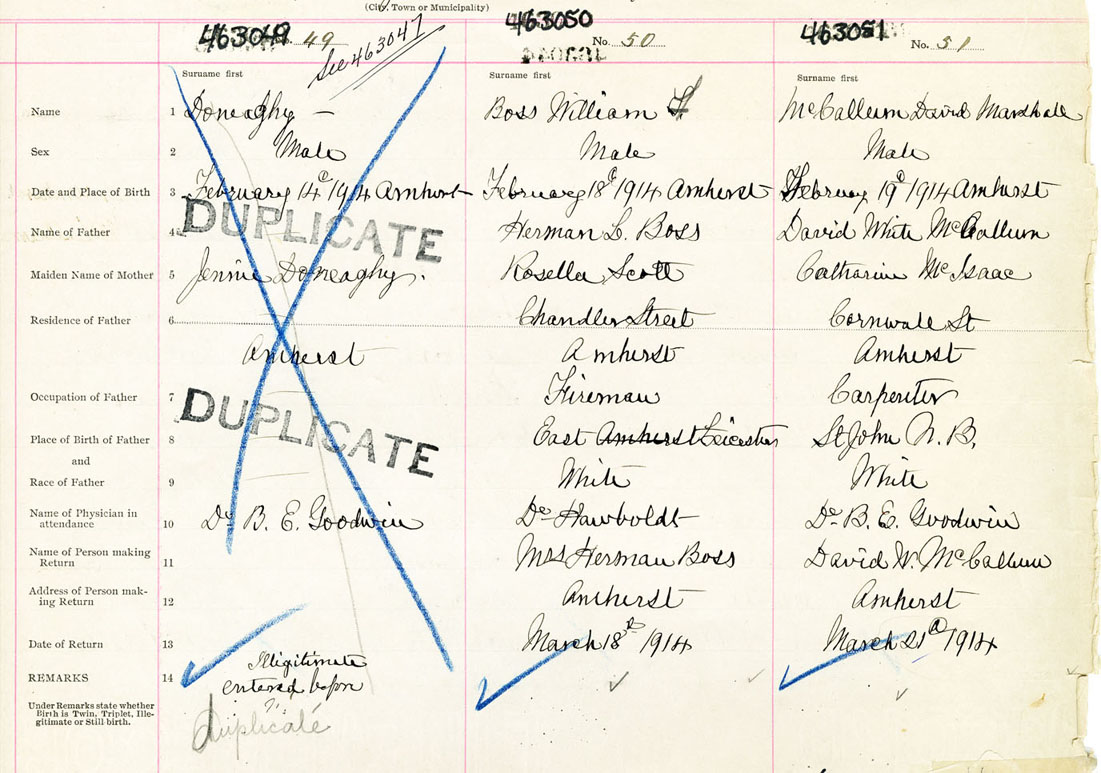 (City, Town or Municipality)
463049 No. 49
See 463047
463050 No. 50
463051 No. 51
Surname first
Surname first
Surname first
Name 1 Doneaghy — Boss William McCallum David Marshall
Sex 2 Male Male Male
Date and Place of Birth 3 February 14th 1914 Amherst February 18th 1914 Amherst February 19th 1914 Amherst
DUPLICATE
Name of Father 4 Herman L. Boss David White McCallum
Maiden Name of Mother 5 Jennie Doneaghy. Rosella Scott Catharine McIsaac
Residence of Father 6 Chandler Street Cornwall St
Amherst Amherst Amherst
Occupation of Father 7 Fireman Carpenter
DUPLICATE
Place of Birth of Father 8 East Amherst Leicester St John N. B.
and
Race of Father 9 White White
Name of Physician in
attendance 10 Dr B. E. Goodwin Dr Hawboldt Dr B. E. Goodwin
Name of Person making
Return 11 Mrs Herman Boss David W. McCallum
Address of Person mak-
ing Return 12 Amherst Amherst
Date of Return 13 March 18th 1914 March 21st 1914
REMARKS 14 Illigitimate
entered before
Under Remarks state whether
Birth is Twin, Triplet, Ille-
gitimate or Still birth.
Duplicate